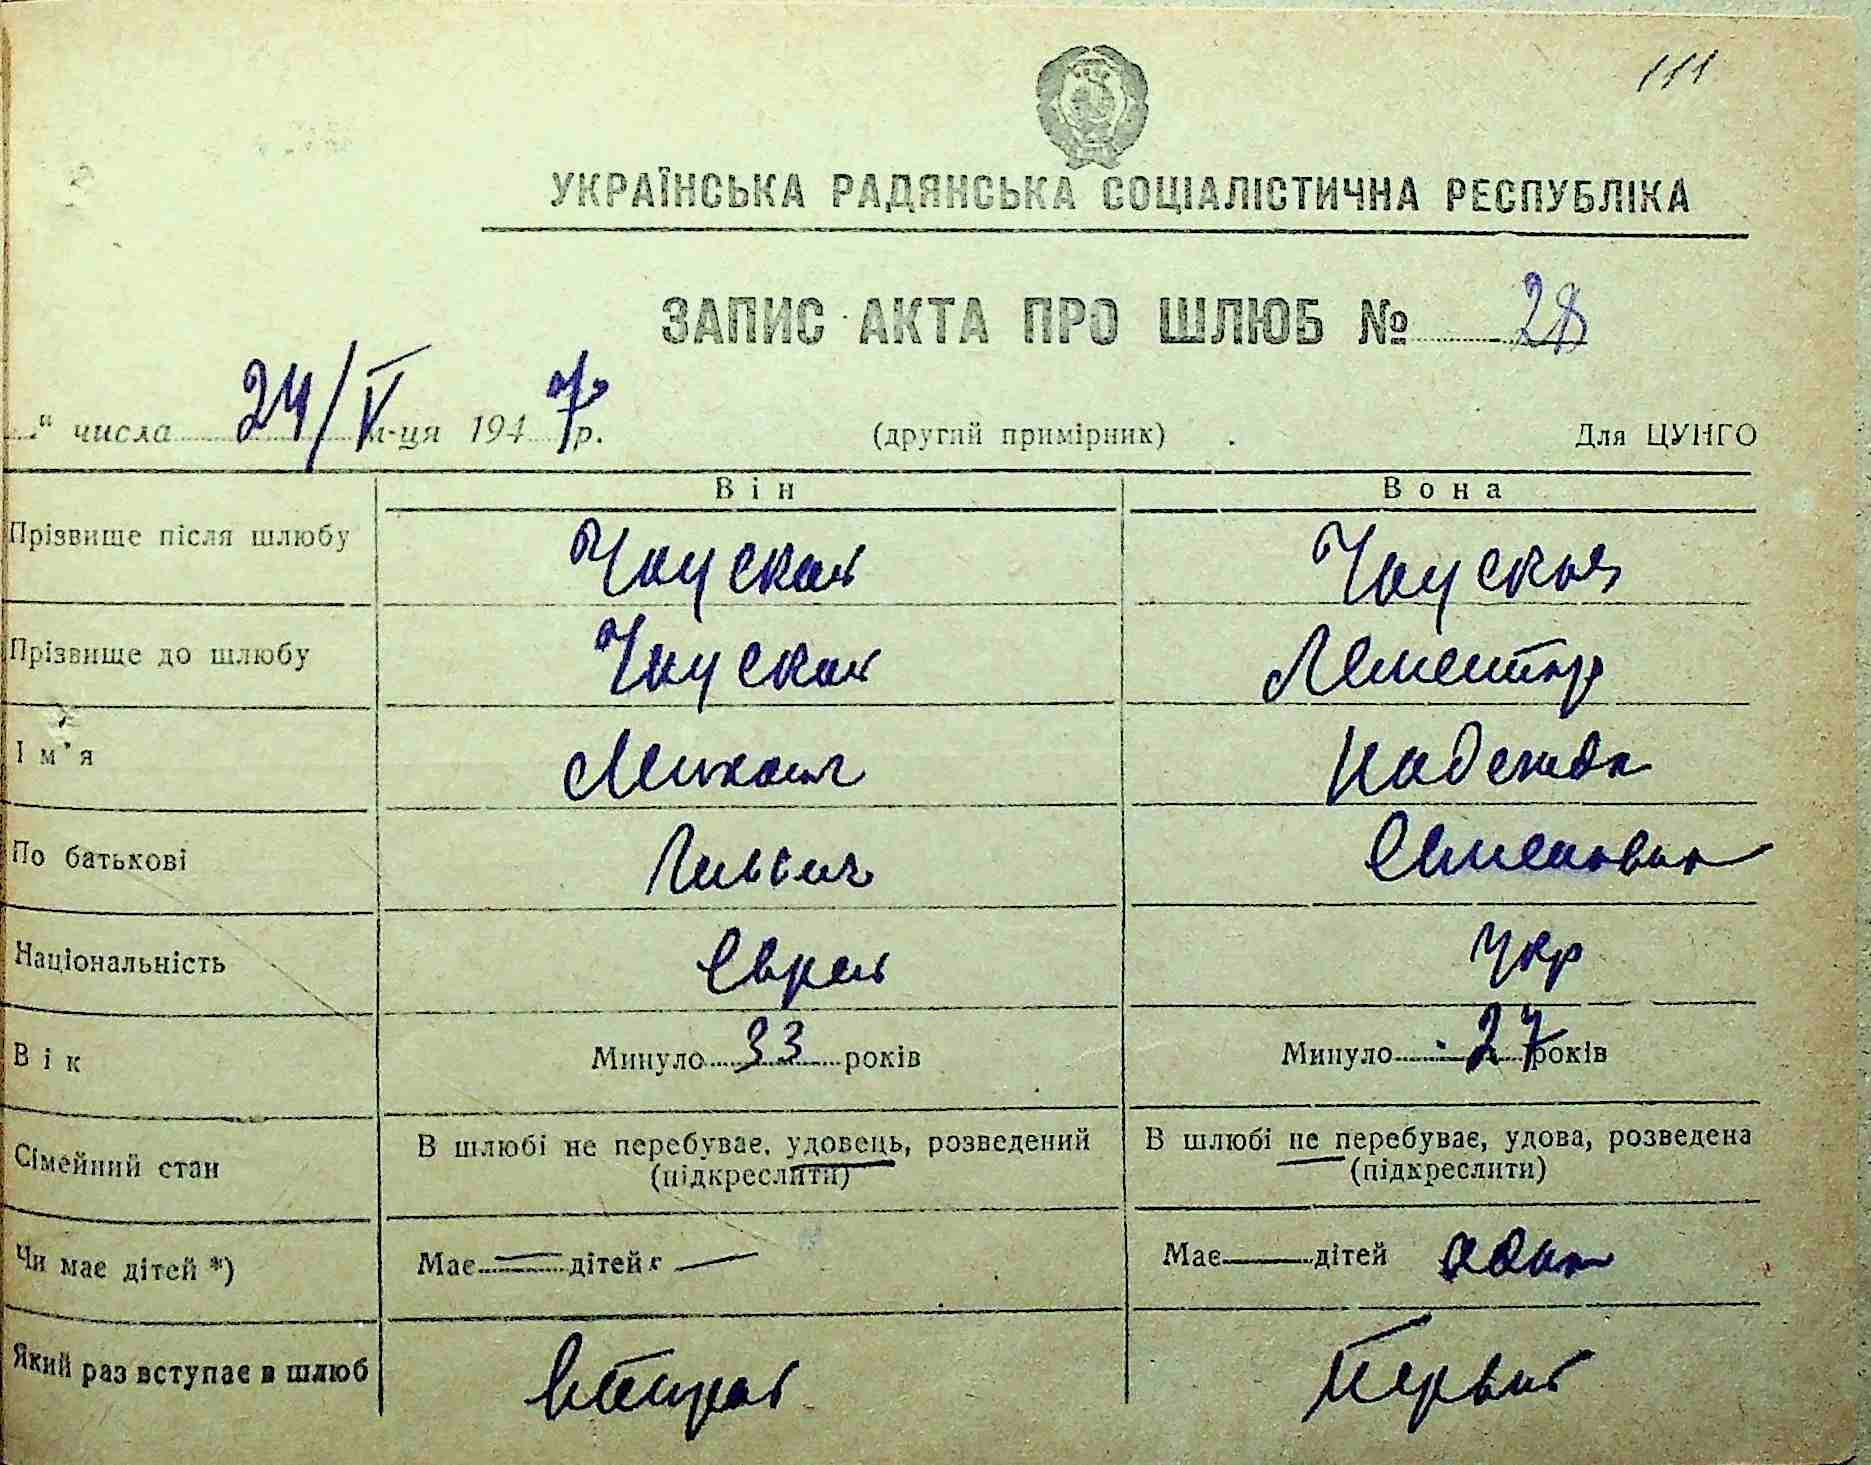 111
УКРАЇНСЬКА РАДЯНСЬКА СОЦІАЛІСТИЧНА РЕСПУБЛІКА
ЗАПИС АКТА ПРО ШЛЮБ № 28
" числа 24/V м-ця 1947 р. (другий примірник) Для ЦУНГО
Він Вона
Прізвище після шлюбу Чауский Чауская
Прізвище до шлюбу Чауский
Ім'я Михаил Надежда
По батькові Семеновна
Національність Еврей Укр
Вік Минуло 33 років Минуло 27 років
Сімейний стан В шлюбі не перебуває, удовець, розведений В шлюбі не перебуває, удова, розведена
(підкреслити) (підкреслити)
Чи має дітей *) Має — дітей — Має — дітей один
Який раз вступає в шлюб второй Первый